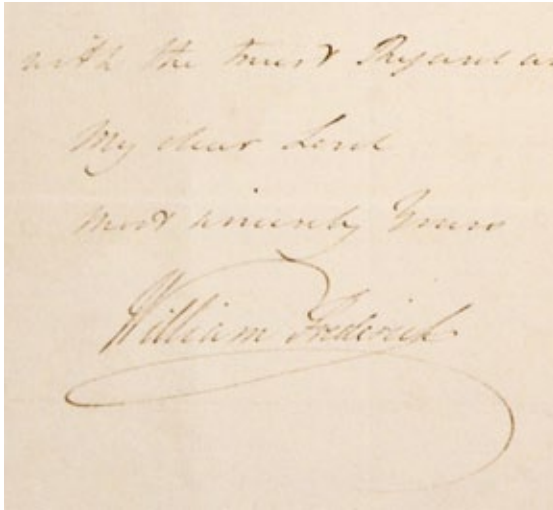 with the truest Regard an
My dear Lord
most sincerely Yours
William Frederick